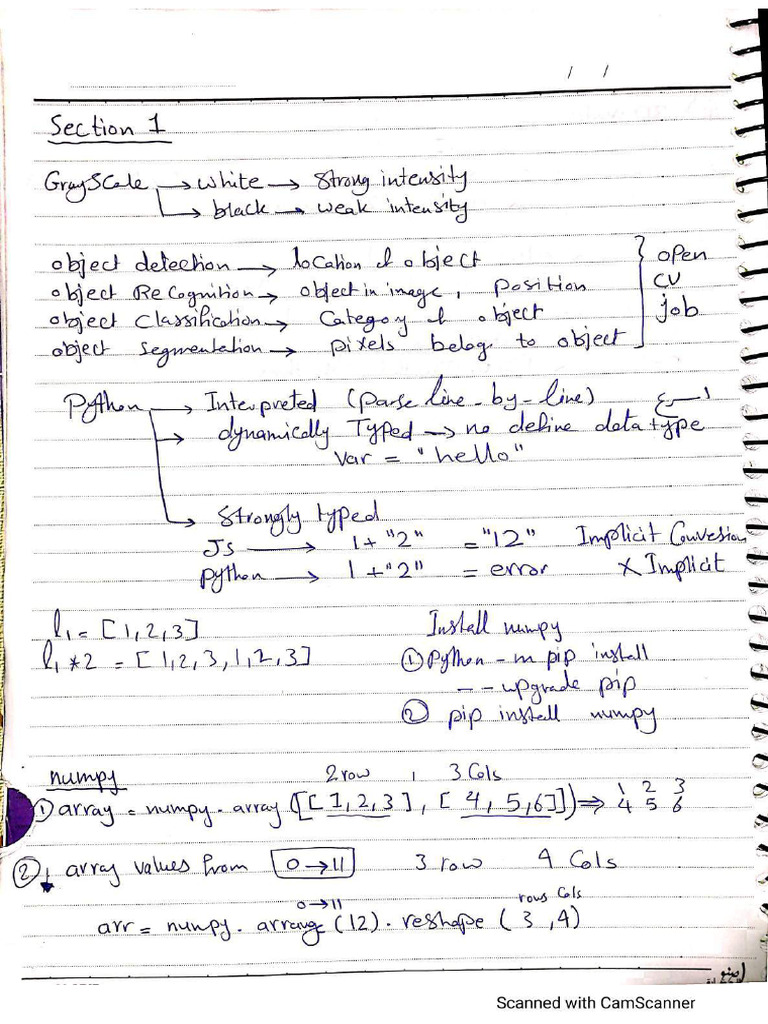 / /
Section 1
GrayScale → white → Strong intensity
→ black → weak intensity
object detection → location of object
object ReCognition → object in image, position
object Classification → Category of object
object segmentation → pixels belog to object
open
CV
job
Python → Interpreted (parse line-by-line) أسرع
→ dynamically Typed → no define data type
var = "hello"
→ Strongly typed
JS → 1+"2" = "12" Implicit Convesion
python → 1+"2" = error X Implicit
l₁ = [1,2,3]
l₁ *2 = [1,2,3,1,2,3]
Install numpy
① Python -m pip install
--upgrade pip
② pip install numpy
numpy
2 row , 3 Cols
① array = numpy.array([[1,2,3], [4,5,6]]) ⇒ 1 2 3
4 5 6
② array values from 0→11 3 row 4 Cols
0→11 rows Cols
arr = numpy.arrange(12).reshape(3,4)
Scanned with CamScanner